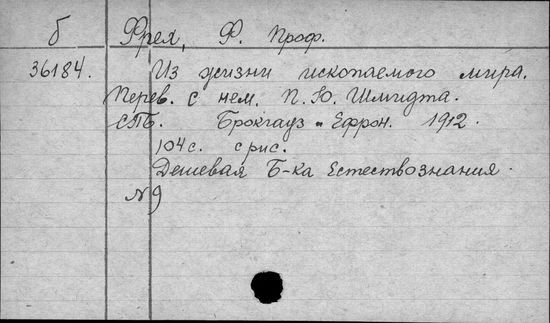 б Фрех, Ф. Проф.
36184. Из жизни ископаемого мира.
Перев. с нем. П. Ю. Шмидта.
СПБ. Брокгауз и Ефрон. 1912.
104 с. с рис.
Дешевая Б-ка Естествознания.
№ 9